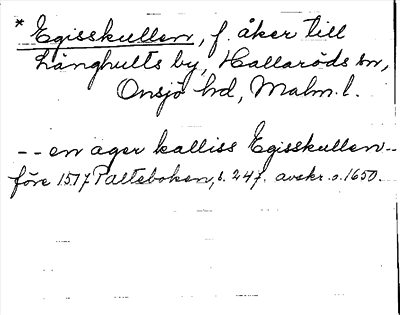 * Egisskullen, f. åker till
Långhults by, Hallaröds sn,
Onsjö hd, Malm. l.
-- en ager kalliss Egisskullen --
före 1517 Palteboken, s. 247. avskr. o. 1650.